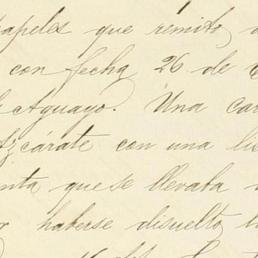 papeles que remito
con fecha 26 de
Aguayo. Una car
zcárate con una li
nta que se llevaba
haberse disuelto